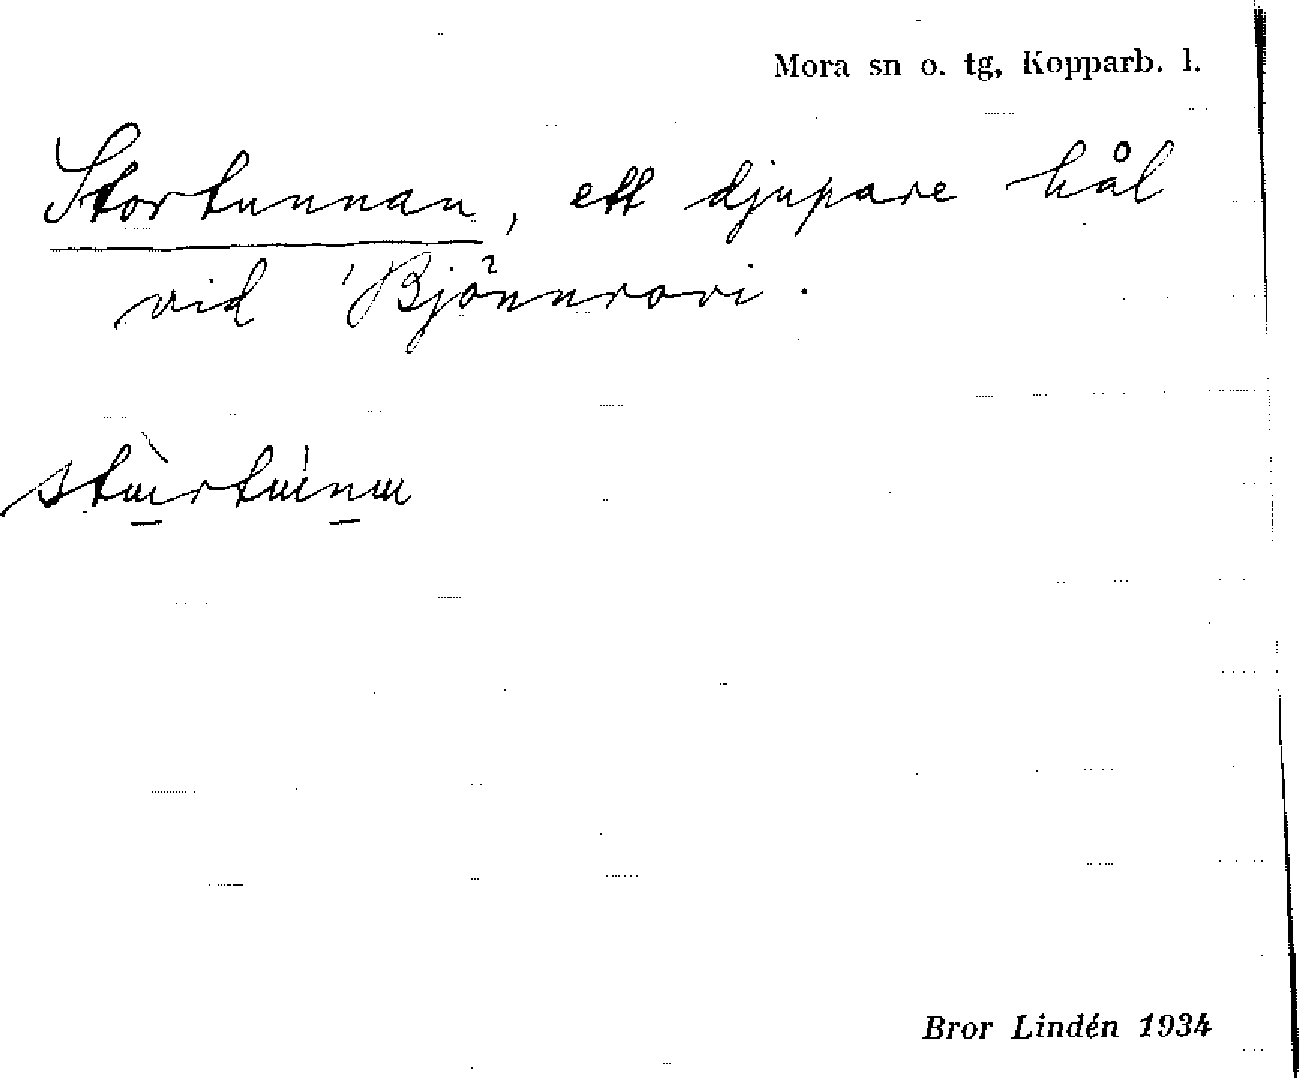 Mora sn o. tg, Kopparb. l.
Stortunnan, ett djupare hål
vid 'Bjönnrovi.
Bror Lindén 1934